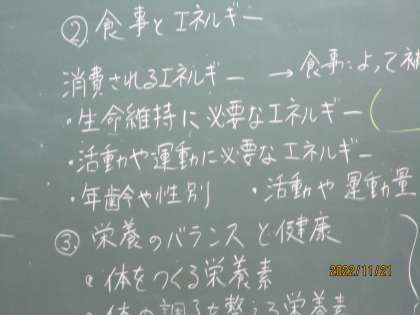 ②食事とエネルギー
消費されるエネルギー → 食事によって補
・生命維持に必要なエネルギー (
・活動や運動に必要なエネルギー
・年齢や性別 ・活動や運動量
③栄養のバランスと健康
・体をつくる栄養素
・体の調子を整える栄養素
2022/11/21